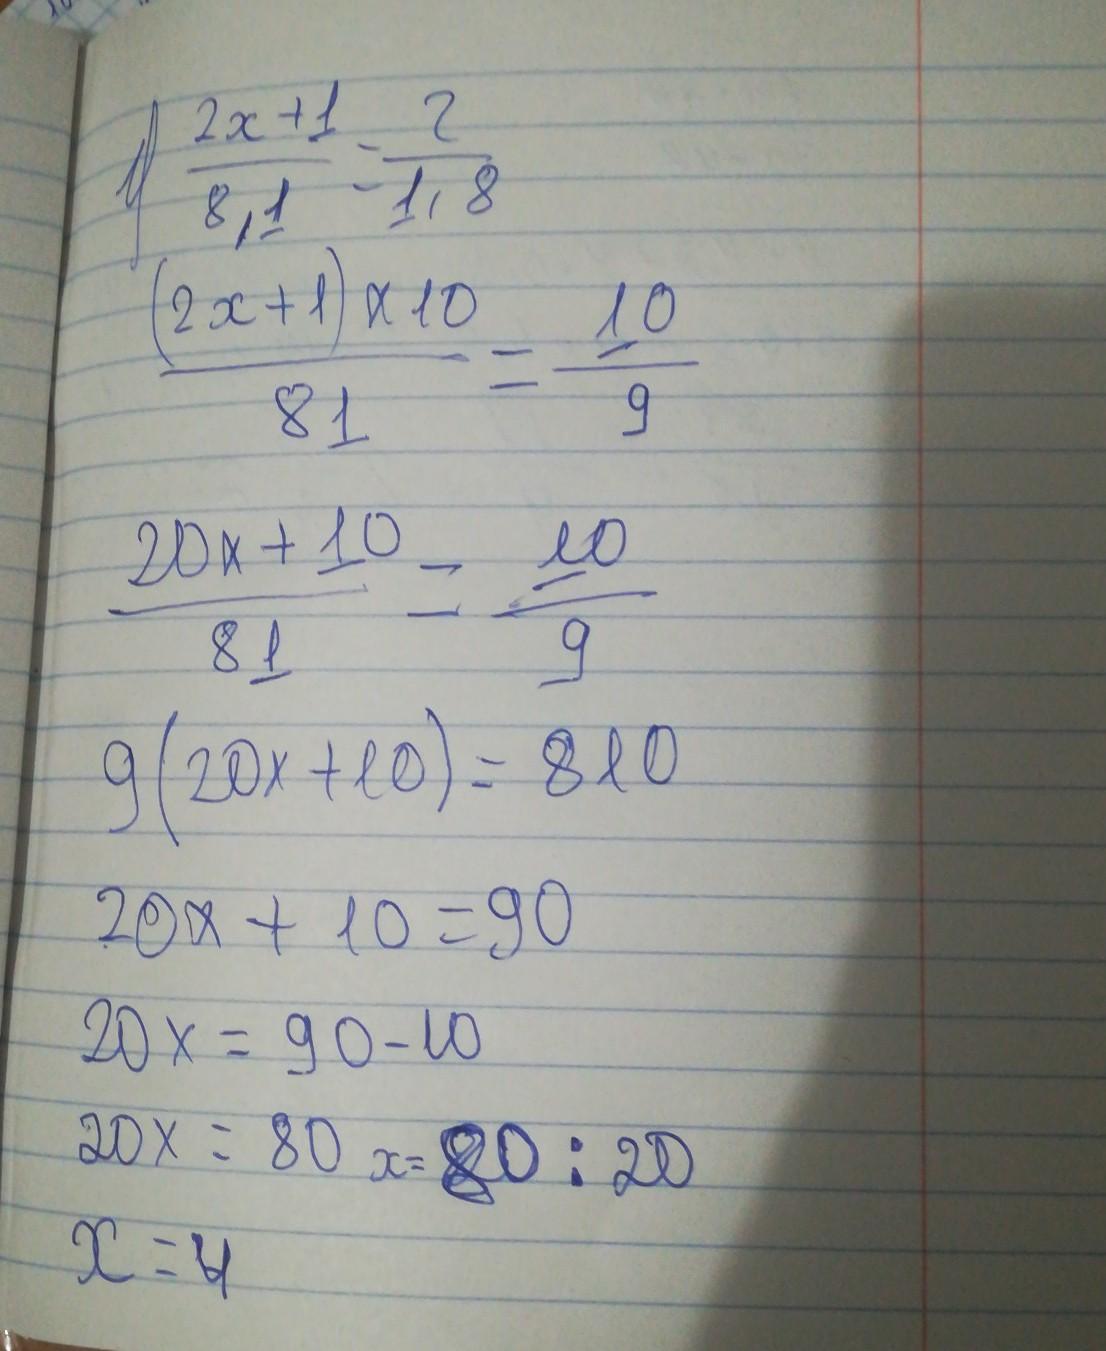 1) (2x+1)/8,1 = 2/1,8
((2x+1)×10)/81 = 10/9
(20x+10)/81 = 10/9
9(20x+10)=810
20x+10=90
20x=90-10
20x=80 x=80:20
x=4